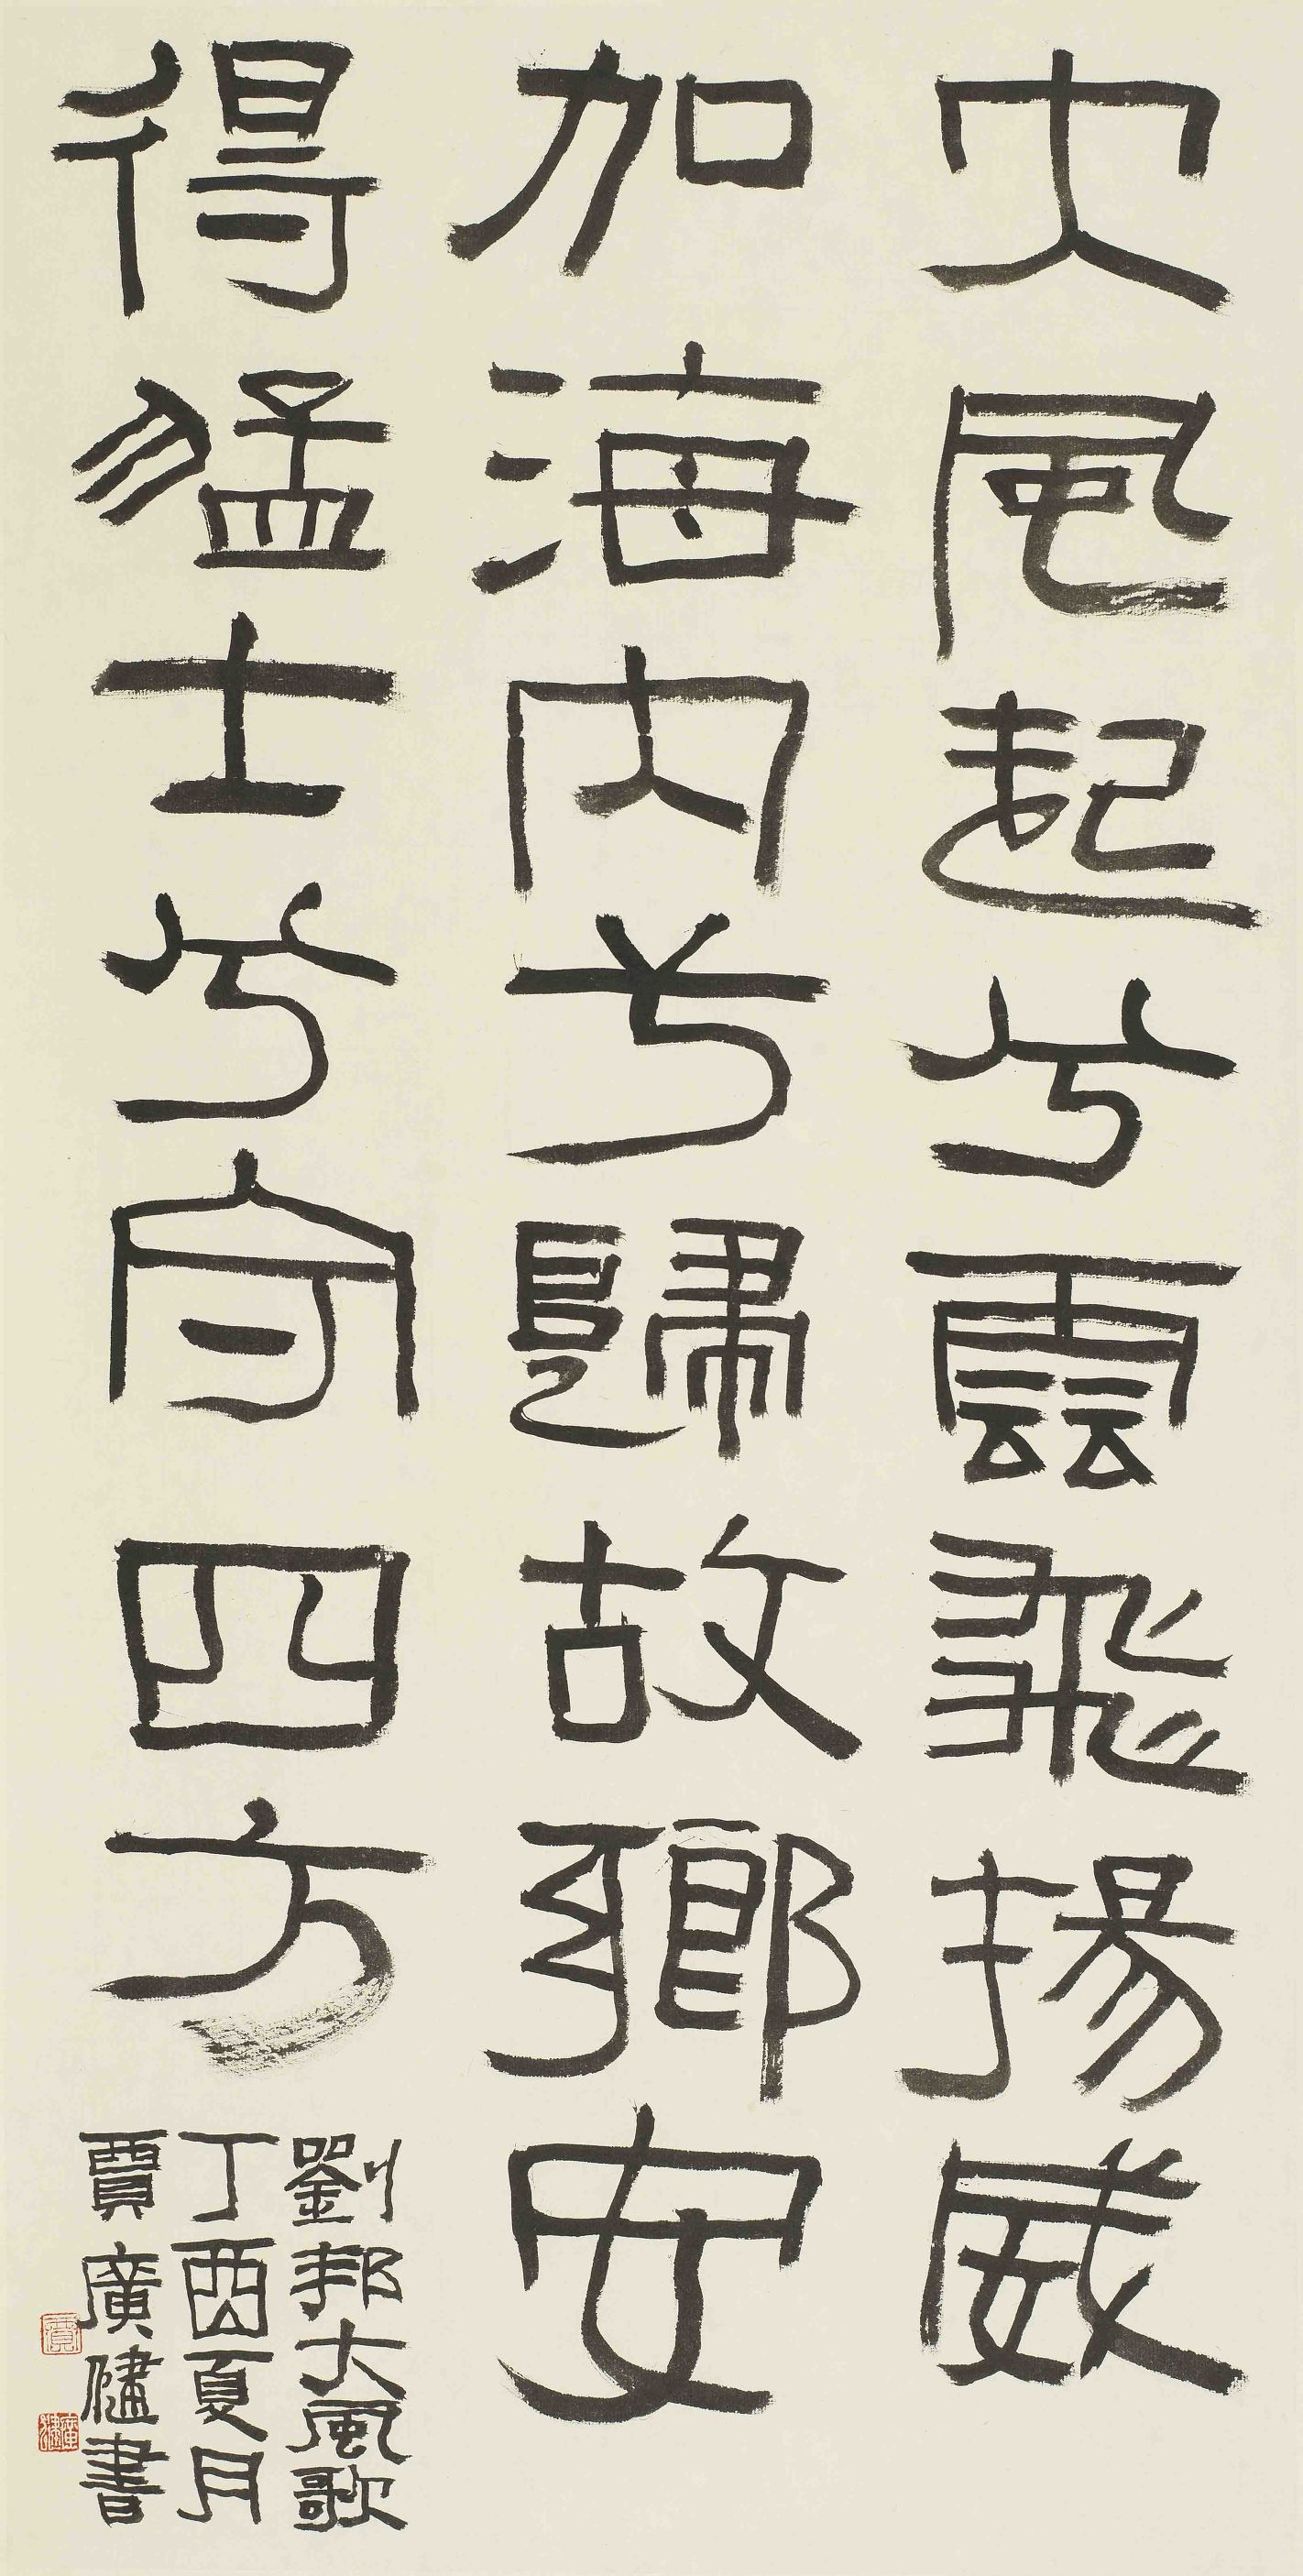 大風起兮雲飛揚威
加海内兮歸故鄉安
得猛士兮守四方
劉邦大風歌
丁酉夏月
賈廣健書
賈
廣健